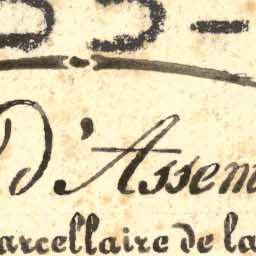 d'Assem
arcellaire de la